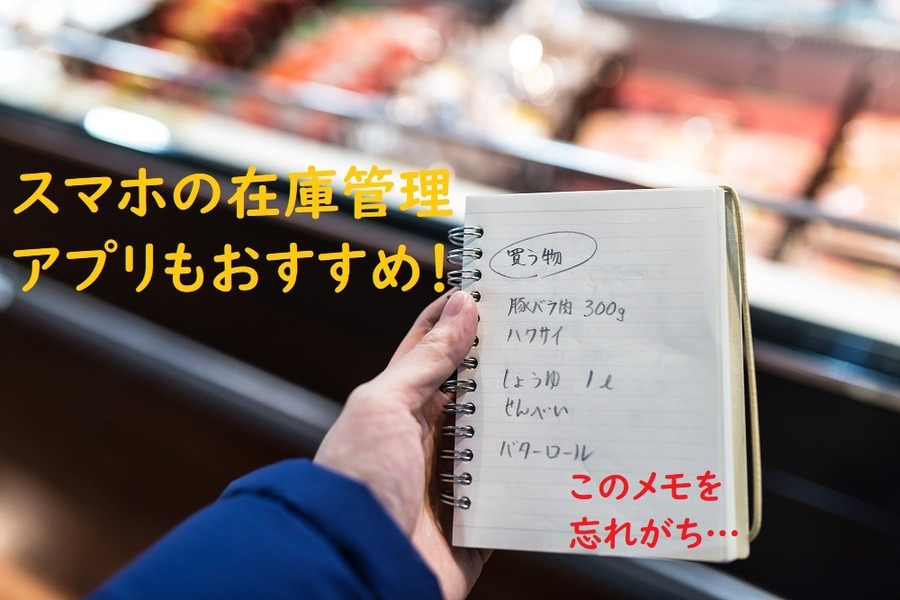 スマホの在庫管理
アプリもおすすめ!
買う物
豚バラ肉 300g
ハクサイ
しょうゆ 1ℓ
せんべい
バターロール
このメモを
忘れがち…